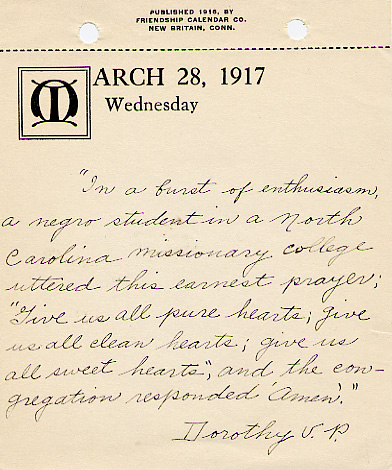 PUBLISHED 1916, BY
FRIENDSHIP CALENDAR CO.
NEW BRITAIN, CONN.
MARCH 28, 1917
Wednesday
"In a burst of enthusiasm,
a negro student in a North
Carolina missionary college
uttered this earnest prayer;
"Give us all pure hearts; give
us all clean hearts; give us
all sweet hearts", and the con-
gregation responded 'Amen'."
Dorothy V. P.